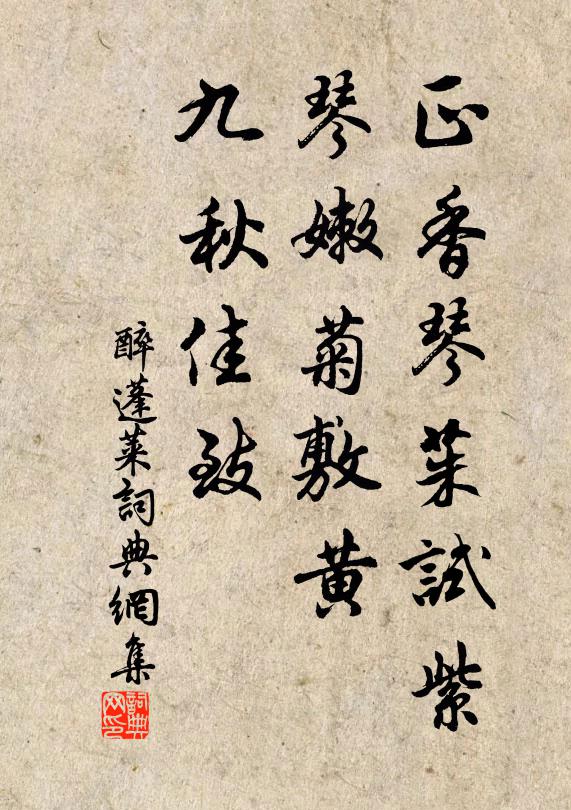 正香琴茱試紫
琴嫩菊敷黄
九秋佳致
醉蓬萊詞典網集
詞典网印